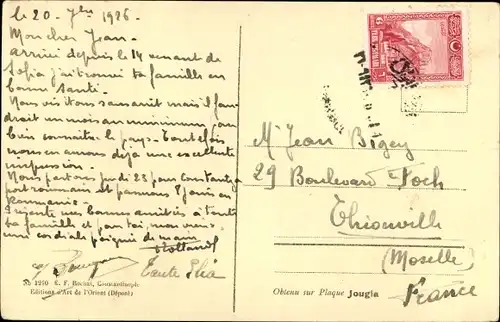 le 20 7bre 1926
Mon cher Jean.
Arrivé depuis le 14 venant de
Sofia j'ai trouvé ta famille en
bonne santé.
Nous visitons sans arrêt mais il fau-
drait un mois au minimum pour
bien connaître le pays. Toutefois
nous en avons déjà une excellente
impression.
Nous partons jeudi 23 pour Constantza
port roumain et pensons
Roumanie.
amitiés à toute
ta famille et pour toi, mon vieux,
une cordiale poignée de main
Tante
No 1290 E. F. Rochat, Constantinople
Editions d'Art de l'Orient (Déposé)
Mr Jean Bigey
29 Boulevard Foch
Thionville
(Moselle)
France
Obtenu sur Plaque Jougla